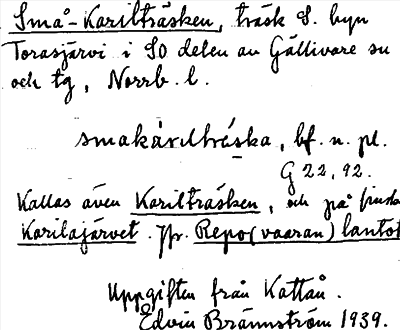 Små-Kariltträsken, träsk S. byn
Torasjärvi i SO delen av Gällivare sn
och tg, Norrb. l.
smakårdtráska, bf. n. pl.
G 22, 92.
Kallas även Kariltträsken, och på finska
Karilajärvet. Jfr. Repo(vaaran)lantot
Uppgiften från Kattån.
Edvin Brännström 1939.